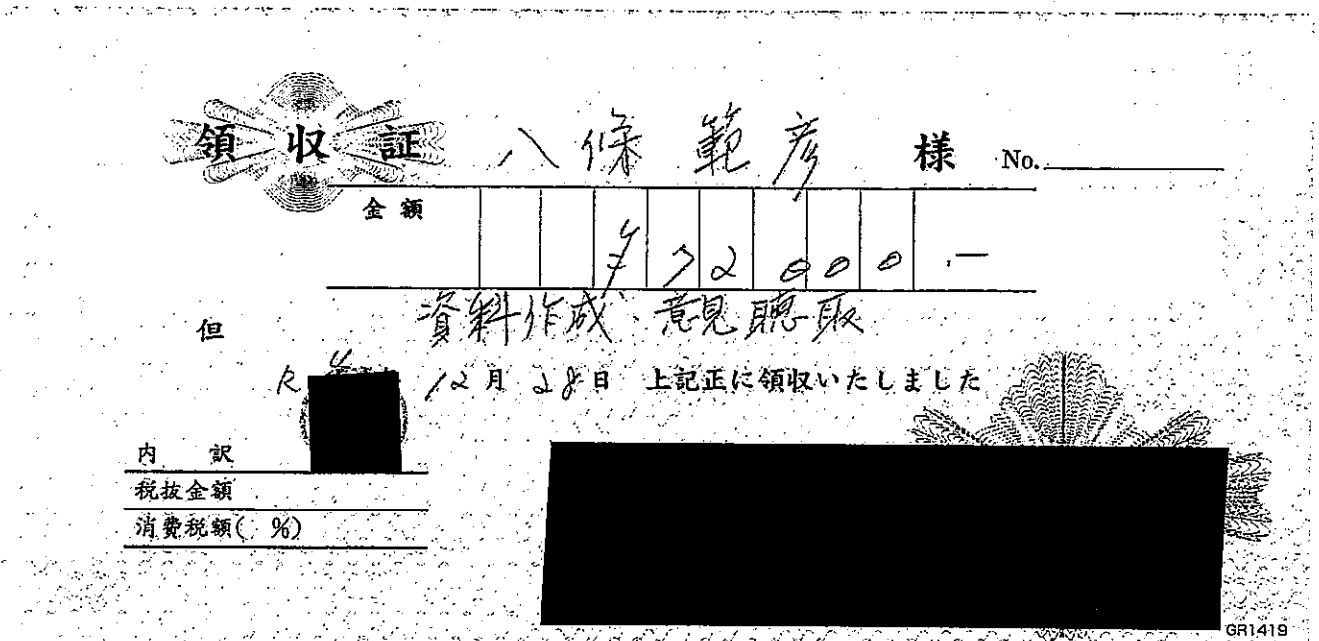 領収証 八條 範彦 様 No.
金額 ¥72000.—
但 資料作成・意見聴取
R 12月28日 上記正に領収いたしました
内訳
税抜金額
消費税額( %)
GR1419